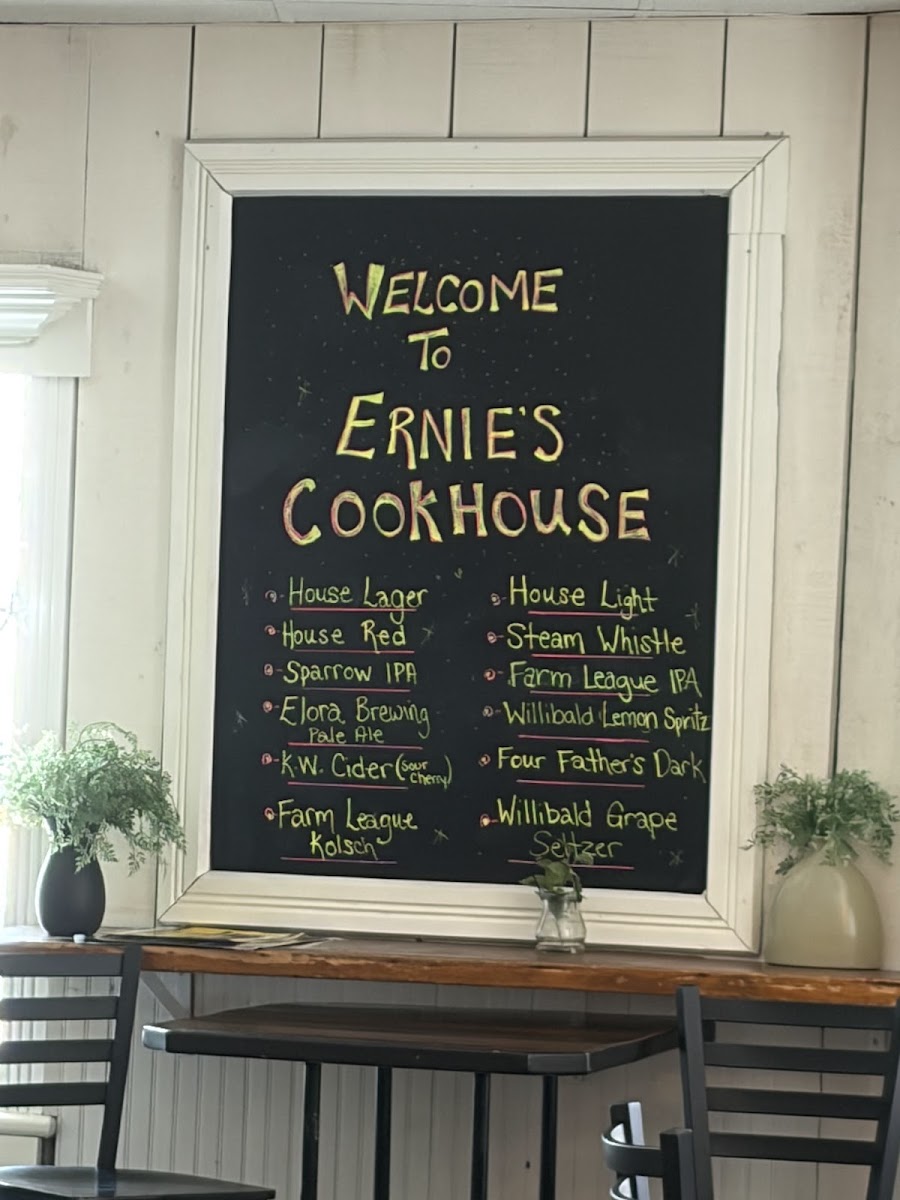 WELCOME
TO
ERNIE'S
COOKHOUSE
House Lager
House Red
Sparrow IPA
Elora Brewing
Pale Ale
K.W. Cider (sour cherry)
Farm League
Kolsch
House Light
Steam Whistle
Farm League IPA
Willibald Lemon Spritz
Four Father's Dark
Willibald Grape
Seltzer